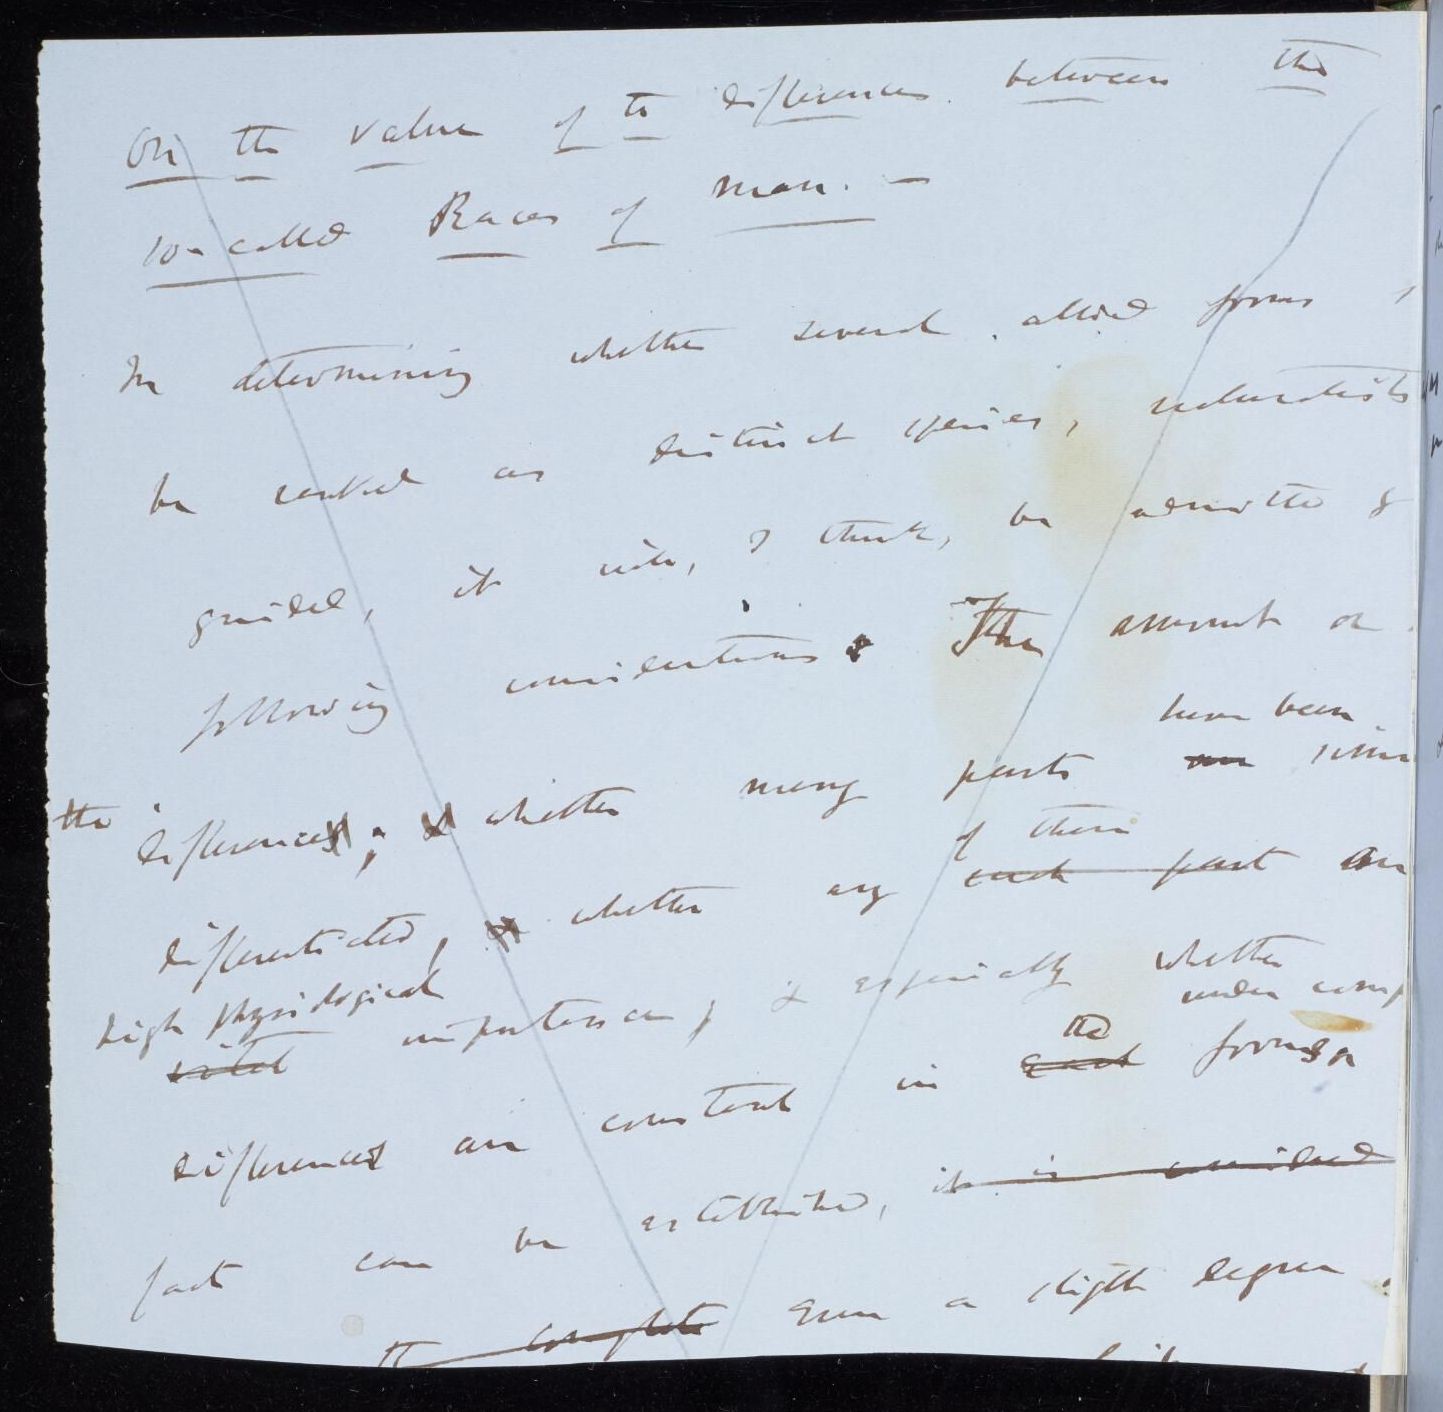 On the value of the differences between the
so-called Races of Man. —
In determining whether several allied forms
be ranked as distinct species, naturalists
guided, it will, I think, be admitted
following considerations: The amount
have been
the differences; & whether many parts are
of them
differentiated, & whether any such part are
high physiological whether
vital importance, & especially under comp
the
differences are constant in each forms
fact can be established, it is considered
complete Even a slight degree